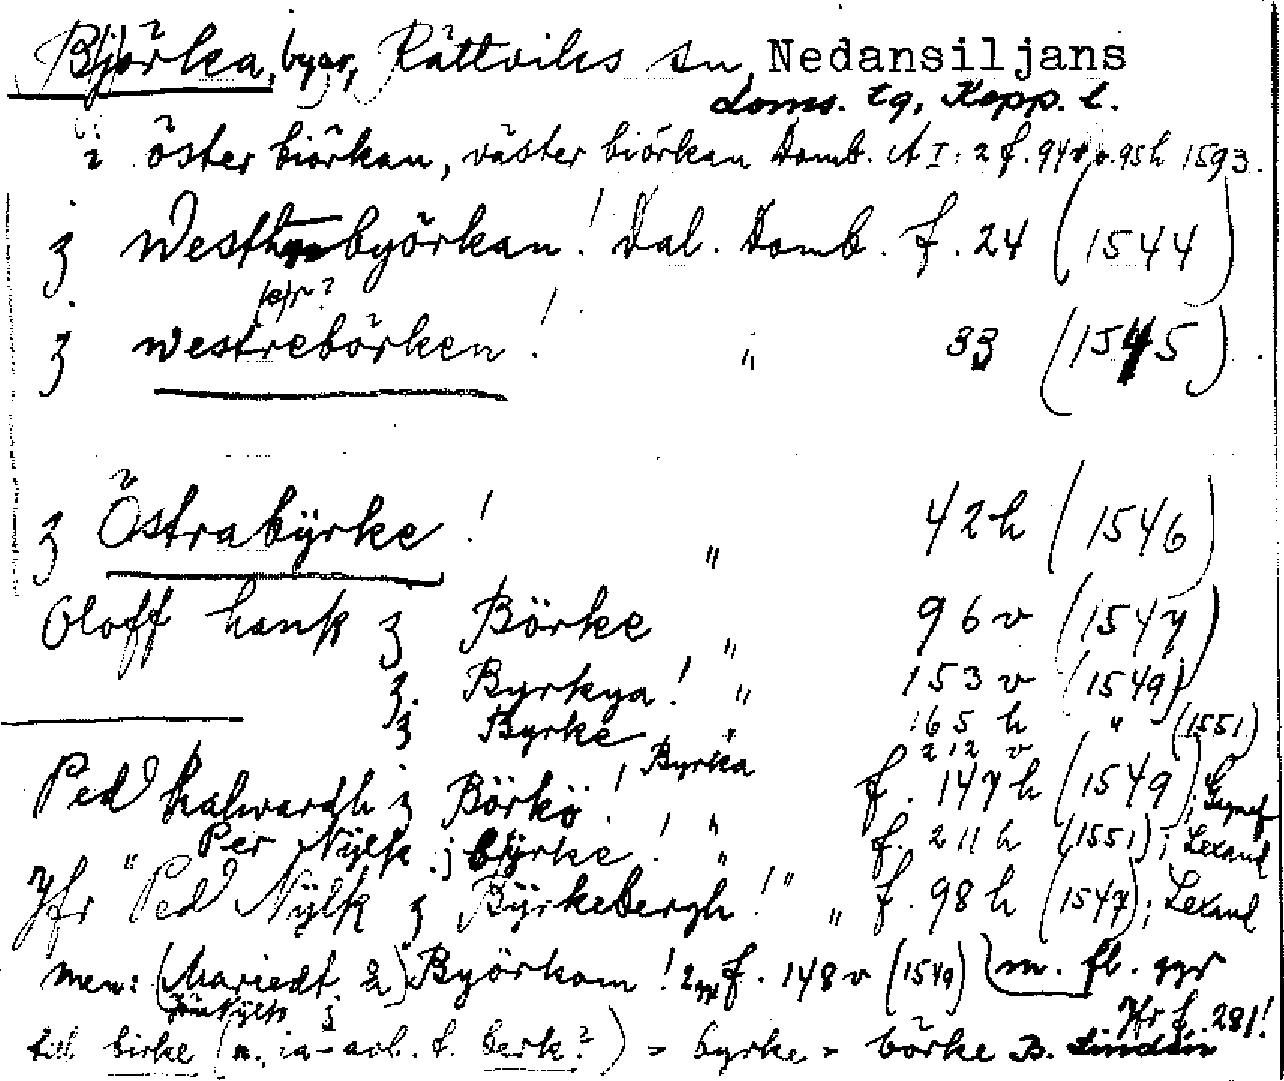 Björka, byar, Rättviks sn, Nedansiljans
doms. tg, Kopp. l.
i öster biörkan, väster biörkan Domb. A I: 2 f. 94 v o. 95 h 1593.
ʒ Westhrebyörkan! Dal. Domb. f. 24 (1544)
ʒ westrebörken! " 33 (1545)
ʒ Östrabÿrke! " 42 h (1546)
Oloff hank ʒ Börke " 96 v (1547)
ʒ. Byrkya! " 153 v (1549)
ʒ Byrke " 165 h " (1551)
Byrka 212 v
Ped halwardh ʒ Börkö! " f. 147 h (1549);
Per Nÿlk j bÿrke! " f. 211 h (1551); Lexand
Jfr "Ped Nÿlk ʒ Bÿrkebergh!" " f. 98 h (1547); Lexand
men: (Mariedt ) Byörkom! f. 148 v (1549) m. fl. ggr
Jfr f. 281!
till birke (n. ia-avl. t. berk?) > byrke > börke B. Lindén